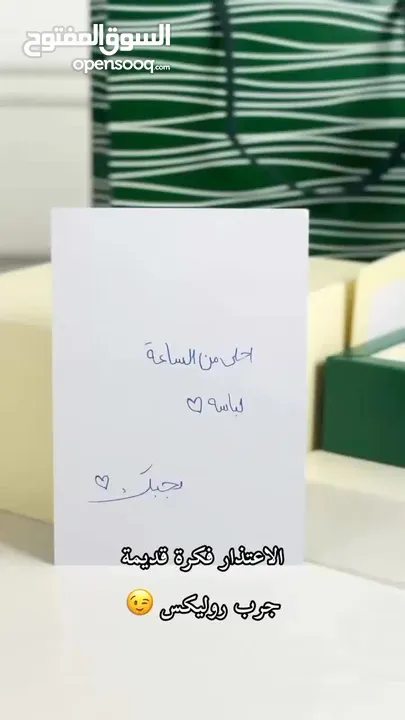 السوق المفتوح
opensooq.com
احلى من الساعة
لباسه ♡
بحبك ♡
الاعتذار فكرة قديمة
جرب روليكس 😉